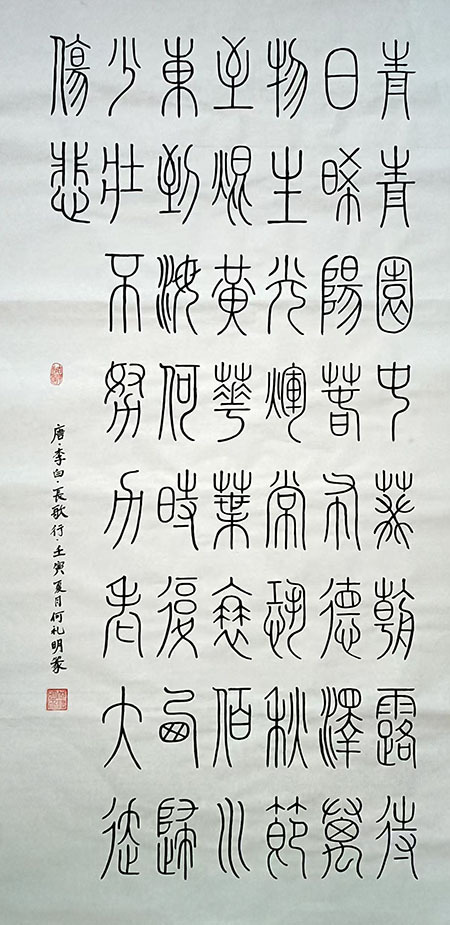 青青園中葵朝露待
日晞陽春布德澤萬
物生光輝常恐秋節
至焜黃華葉衰佰川
東到海何時復西歸
少壯不努力老大徒
傷悲
唐·李白·長歌行·壬寅夏月何礼明篆